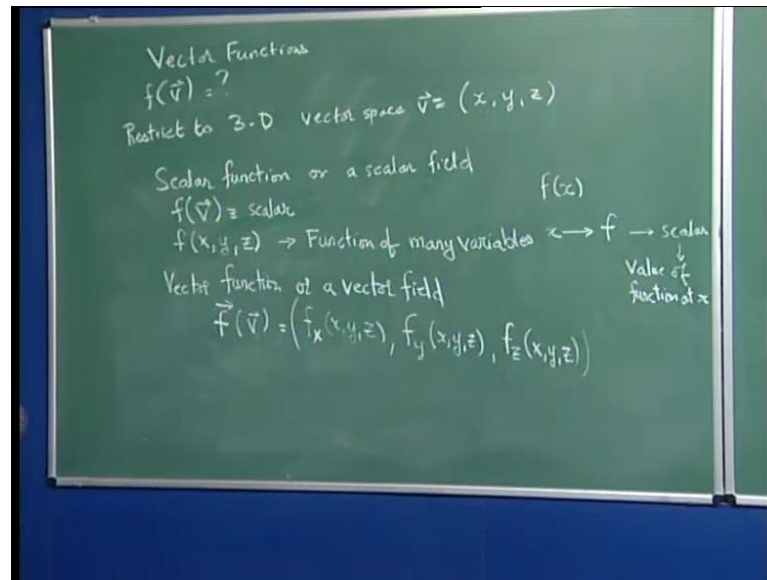 Vector Functions
f(v⃗) = ?
Restrict to 3-D vector space v⃗ = (x, y, z)
Scalar function or a scalar field
f(v⃗) = scalar
f(x)
f(x, y, z) → Function of many variables x → f → scalar
↓
Value of
function at x
Vector function or a vector field
f⃗(v⃗) = (f_x(x,y,z), f_y(x,y,z), f_z(x,y,z))